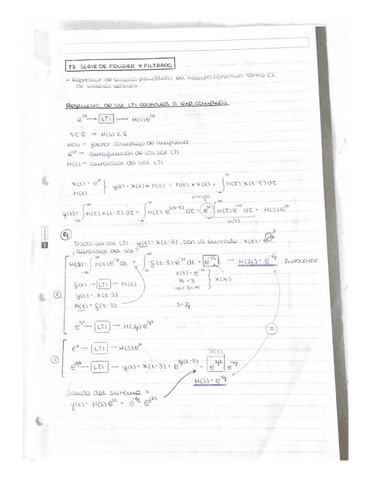 T3 SERIE DE FOURIER Y FILTRADO
- Representar de señales periódicas en tiempo continuo como CL
de señales básicas
Respuesta de sist. LTI continuos a exp. compleja
e^st → [LTI] → H(s)e^st
s ∈ ℂ → H(s) ∈ ℂ
H(s) = factor complejo de amplitud
e^st → autofunción de los sist LTI
H(s) → autovalor del sist LTI
x(t) = e^st
h(t)
} y(t) = x(t) * h(t) = h(t) * x(t) = ∫ h(τ) x(t-τ) dτ
y(t) = ∫ h(τ) x(t-τ) dτ = ∫ h(τ) e^s(t-τ) dτ = e^st ∫ h(τ) e^-sτ dτ = H(s) e^st
Ej
Dado un sist. LTI y(t) = x(t-3), con la entrada x(t) = e^j2t
¿Autovalor del sist?
H(s) = ∫ h(τ) e^-sτ dτ = ∫ δ(τ-3) e^-sτ dτ = e^-3s → H(2j) = e^-6j Autovalor
δ(t) → [LTI] → h(t)
y(t) = x(t-3)
h(t) = δ(t-3)
s = 2j
e^j2t → [LTI] → H(2j) e^j2t
e^st → [LTI] → H(s) e^st
e^j2t → [LTI] → y(t) = x(t-3) = e^j2(t-3) = e^j2t e^-6j
x(t)
H(s) = e^-6j
Salida del sistema =
y(t) = H(s) e^st = e^-6j e^j2t